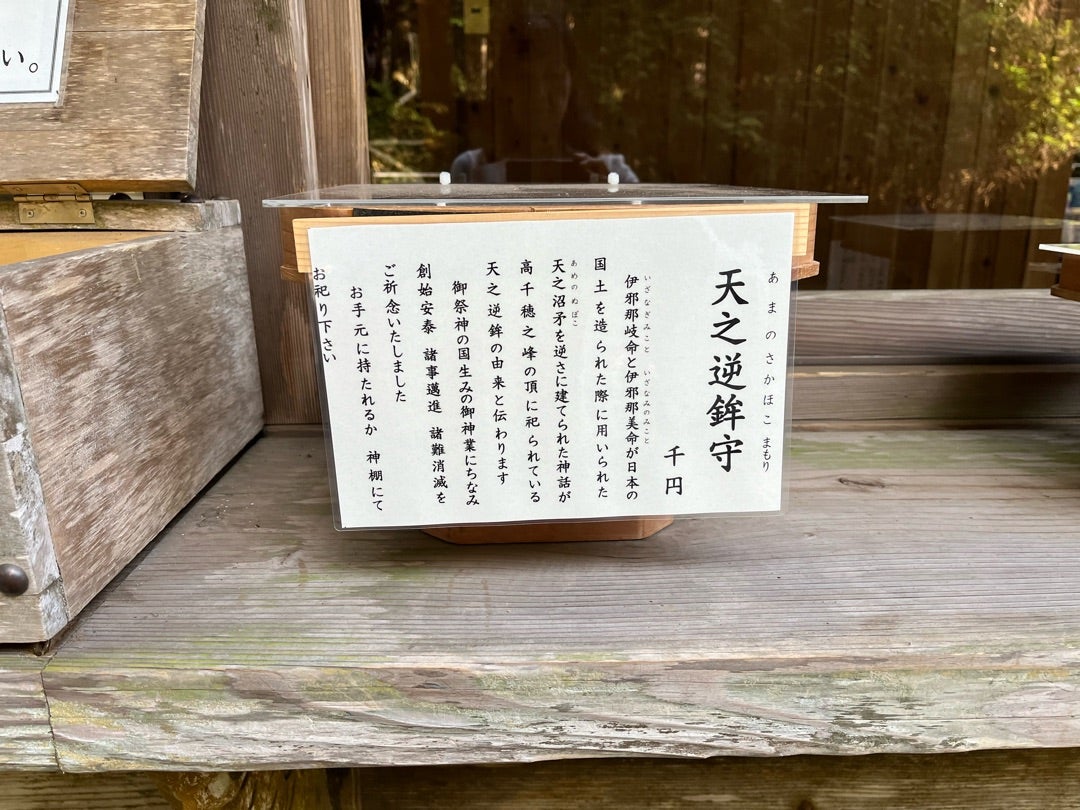 あまのさかほこ まもり
天之逆鉾守
千円
いざなぎみこと いざなみのみこと
伊邪那岐命と伊邪那美命が日本の
国土を造られた際に用いられた
あめのぬぼこ
天之沼矛を逆さに建てられた神話が
高千穂之峰の頂に祀られている
天之逆鉾の由来と伝わります
御祭神の国生みの御神業にちなみ
創始安泰 諸事邁進 諸難消滅を
ご祈念いたしました
お手元に持たれるか 神棚にて
お祀り下さい
い。